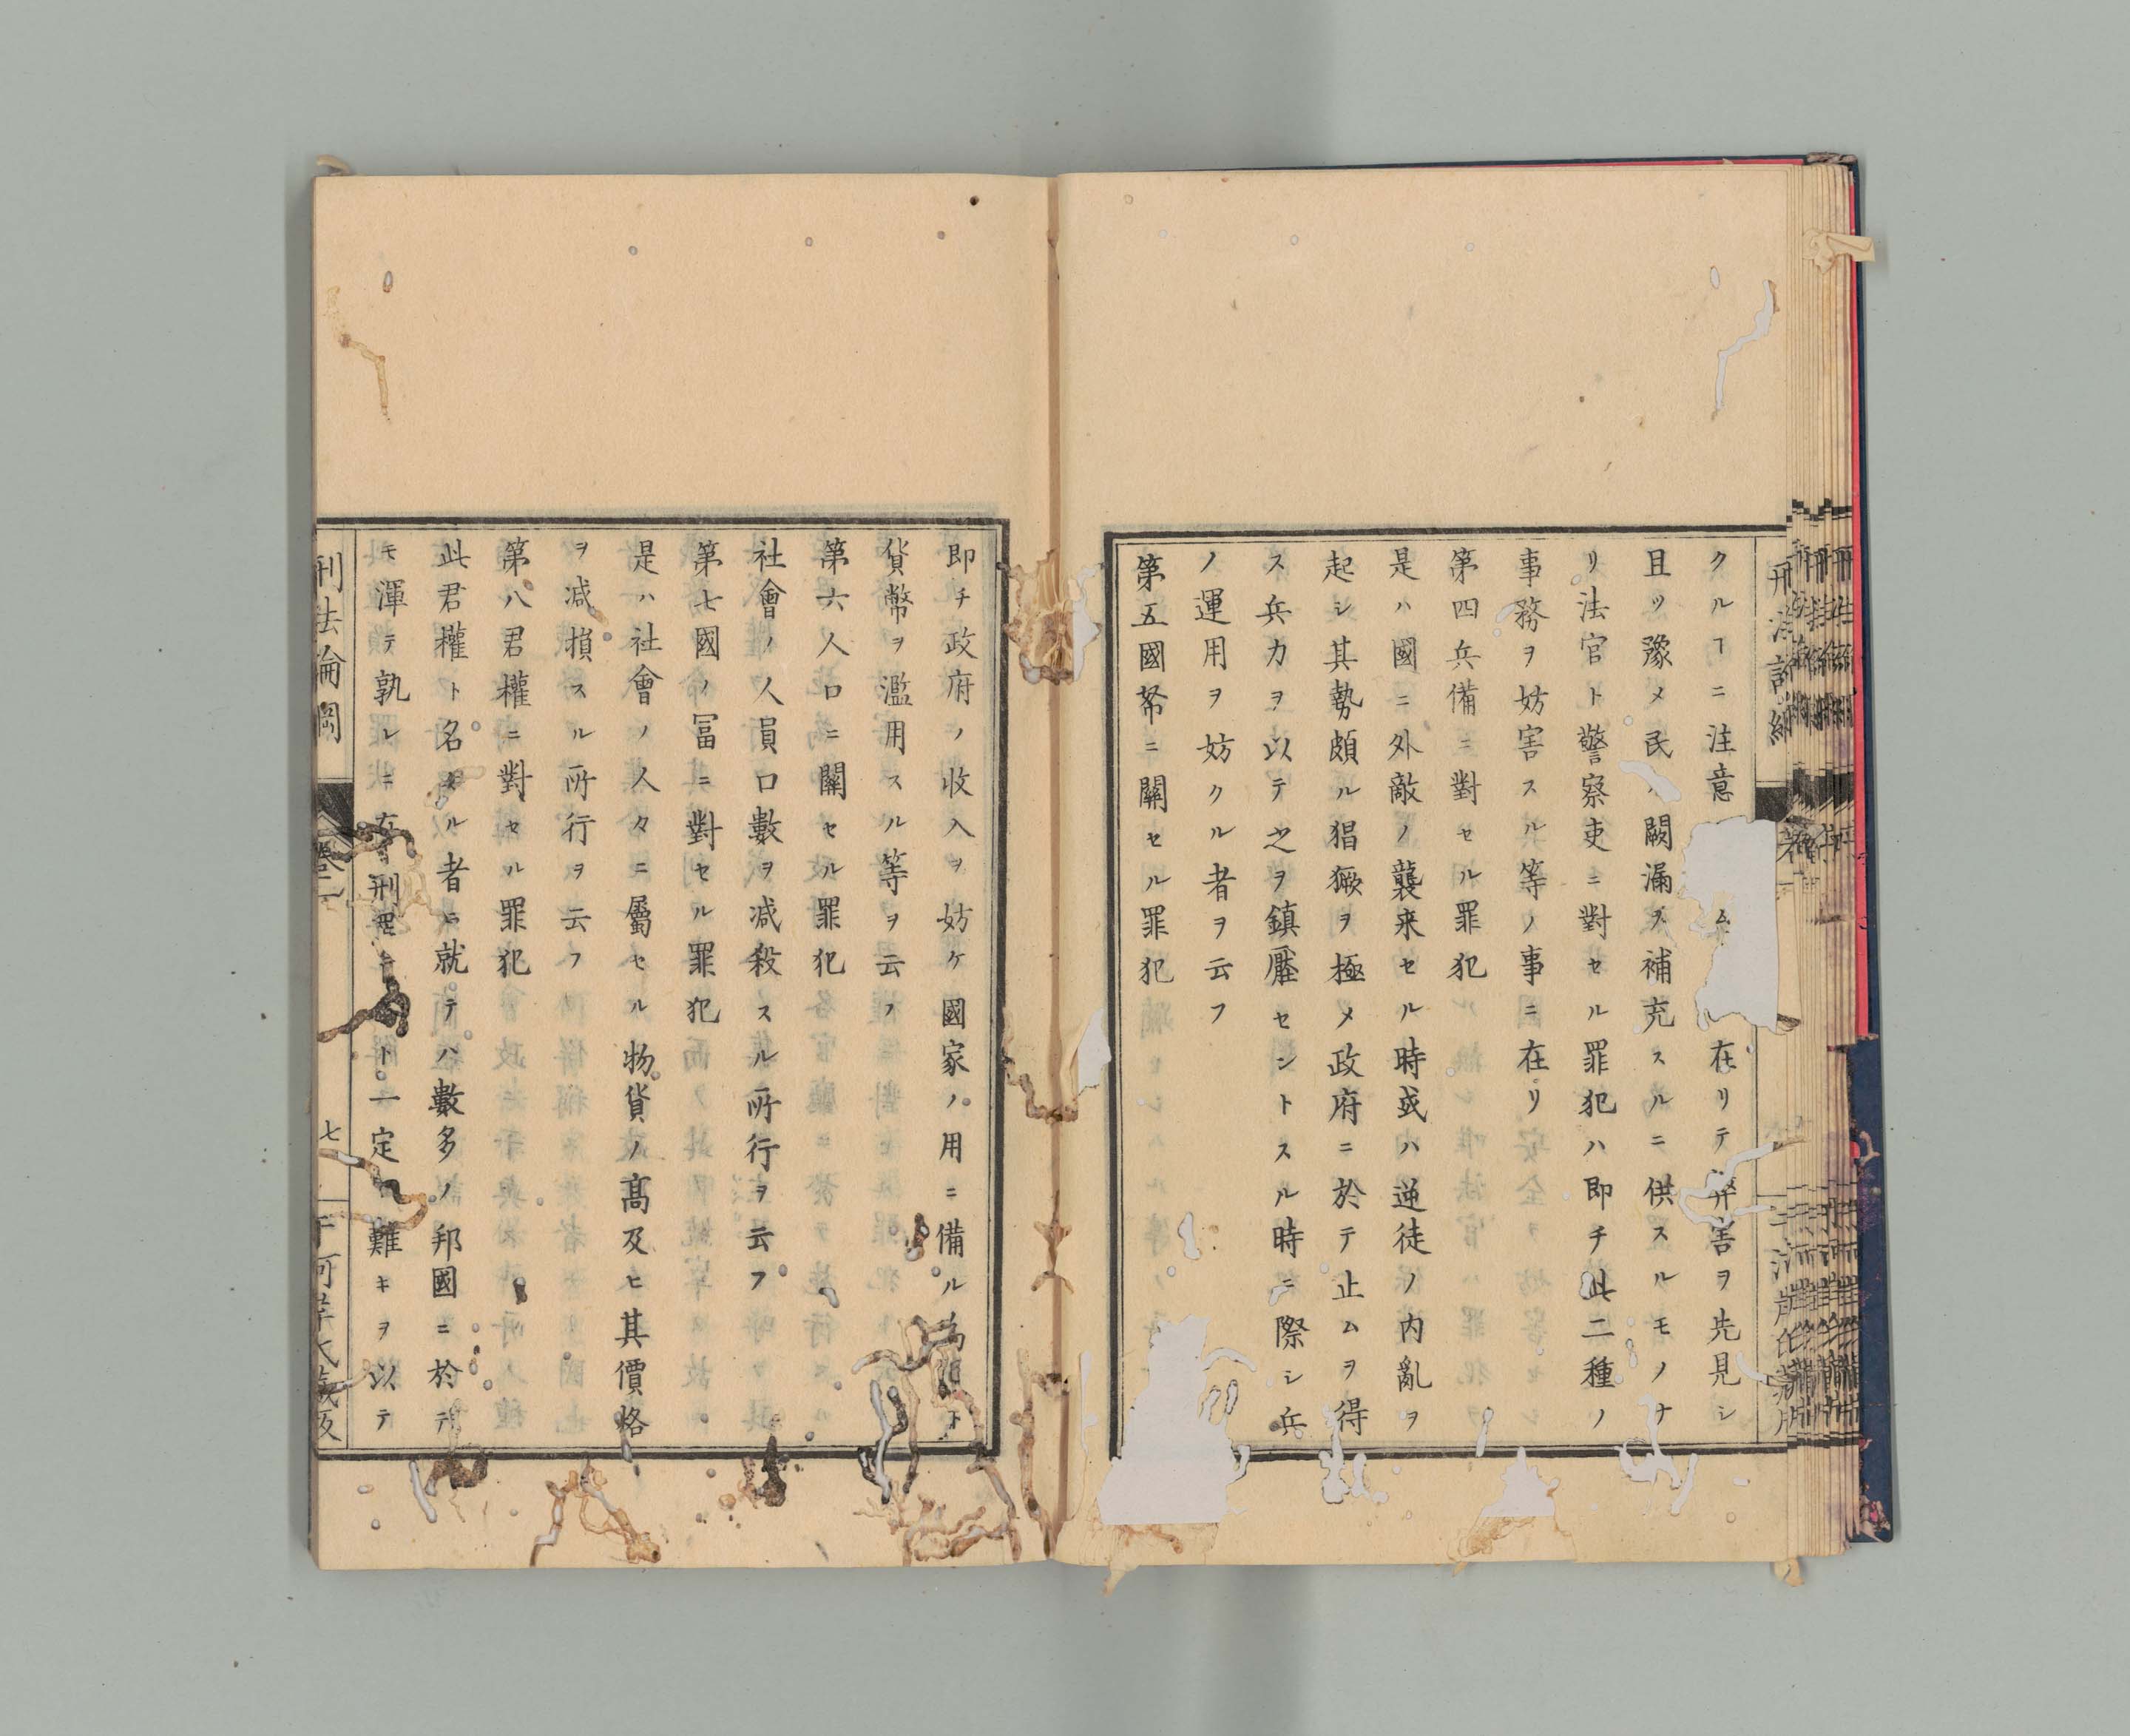 クルヿニ注意 在リテ弊害ヲ先見シ
且ツ豫メ民 闕漏ヲ補充スルニ供スルモノナ
リ法官ト警察吏ニ對セル罪犯ハ即チ此二種ノ
事務ヲ妨害スル等ノ事ニ在リ
第四兵備ニ對セル罪犯
是ハ國ニ外敵ノ襲来セル時或ハ逆徒ノ内亂ヲ
起シ其勢頗ル猖獗ヲ極メ政府ニ於テ止ムヲ得
ス兵力ヲ以テ之ヲ鎮壓セシトスル時ニ際シ兵
ノ運用ヲ妨クル者ヲ云フ
第五國帑ニ關セル罪犯
即チ政府ノ收入ヲ妨ケ國家ノ用ニ備ル為
貨幣ヲ濫用スル等ヲ云フ
第六人口ニ關セル罪犯
社會ノ人員口數ヲ减殺スル所行ヲ云フ
第七國ノ冨ニ對セル罪犯
是ハ社會ノ人々ニ屬セル物貨ノ髙及ヒ其價格
ヲ减損スル所行ヲ云フ
第八君權ニ對セル罪犯
此君權ト名クル者ニ就テハ數多ノ邦國ニ於テ
モ渾テ孰レニ在 刑 ト一定 難キヲ以テ
刑法論綱
卷一
七
何禮氏藏版